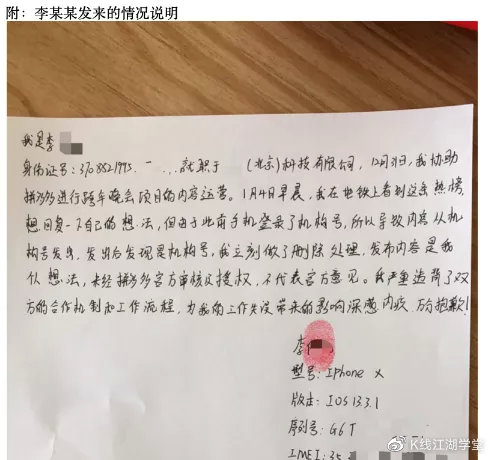 附：李某某发来的情况说明
我是李
身份证号：3708521995 就职于 (北京)科技有限公司，12月31日，我协助
拼多多进行跨年晚会项目的内容运营。1月4日早晨，我在地铁上看到这条热榜，
想回复一下自己的想法，但由于此前手机登录了机构号，所以导致内容从机
构号发出，发出后发现是机构号，我立刻做了删除处理，发布内容是我
个人想法，未经拼多多官方审核及授权，不代表官方意见。我严重违背了双
方的合作机制和工作流程，为我的工作失误带来的影响深感内疚，万分抱歉！
李
型号：Iphone X
版本：IOS13.3.1
序列号：G6T
IMEI：35
@K线江湖学堂